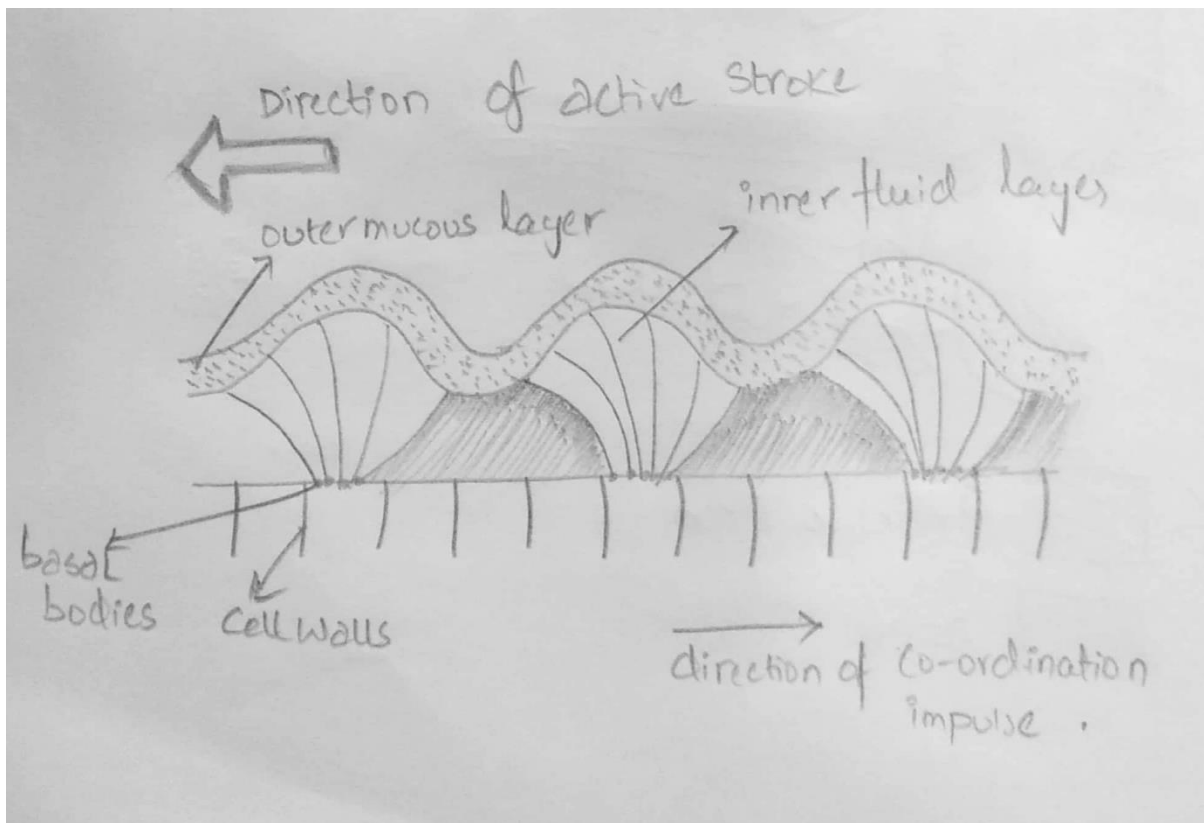 Direction of active stroke
outermucous layer
inner fluid layer
basal
bodies
cellwalls
direction of co-ordination
impulse .